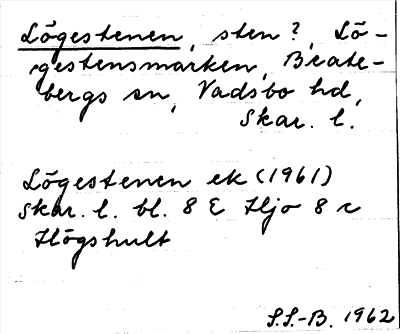 Lögestenen, sten?, Lö-
gestensmarken, Beate-
bergs sn, Vadsbo hd,
Skar. l.
Lögestenen ek (1961)
Skar. l. bl. 8 E Hjo 8 c
Högshult
S.S.-B. 1962